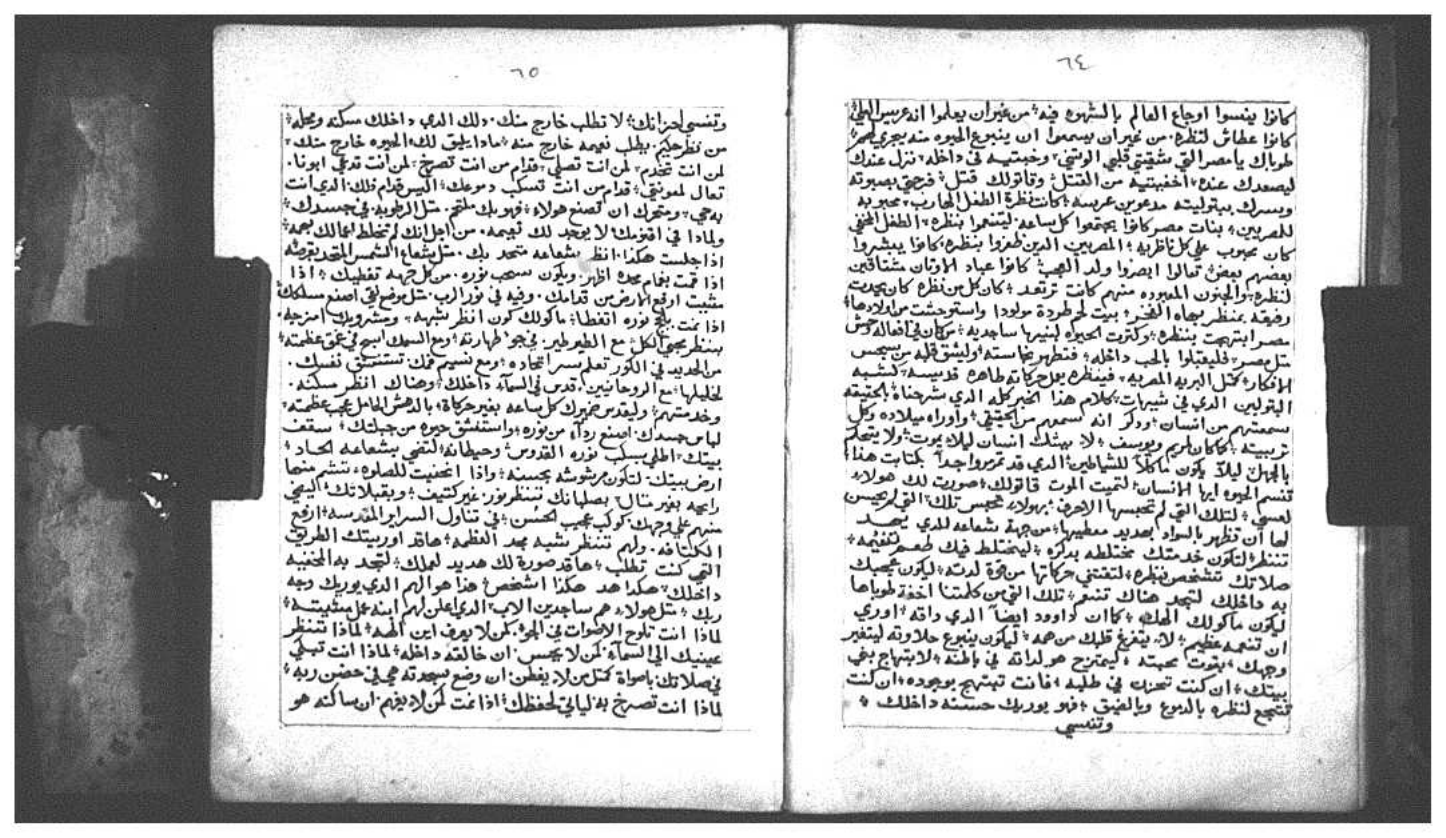 ٦٤
كانوا ينسوا اوجاع العالم بالشهوه فيه من غير ان يعلموا انه عريس
كانوا عطاش لنظره من غير ان يسمعوا ان ينبوع الحيوه منه يجري لهم
طوباك يا مصر التي شقيتي قلبي الوتني وخبتيه في داخله نزل عندك
ليصعدك عنده اخفيتيه من القتل وقاتولك قتل فرحتي بصبوته
ويسرك ببتوليته مدعوين عرسه كانت نظرة الطفل الهارب محبوبه
للمصريين بنات مصر كانوا يجتمعوا كل ساعه ليتنعموا بنظره الطفل المخفي
كان محبوب علي كل ناظريه المصريين الدين ظفروا بنظره كانوا يبشروا
بعضهم بعض تعالوا ابصروا ولد العجب كانوا عباد الاوتان مشتاقين
لنظره والجنون المعبوده منهم كانت ترتعد كان كل من نظره كان يحدت
رفيقه بمنظر بهاه الفخر بيت لحم طرودة مولودا واستوحشت من اولادها
مصر ابتهجت بنظره وكترت الحيوه لبنيها ساجديه من كان في افعاله وحش
متل مصر فليقبلوا بالحب داخله فتطهر نجاسته وليشق قلبه من يحبس
الافكار كمتل البريه المصريه فينظره يعمل حركاته طاهره قديسه كشبه
البتولين الدي في شيهات كلام هدا الخبر كله الدي شرحناه بالحقيقه
سمعتهم من انسان ودكر انه سمعهم من الحقيقي واوراه ميلاده وكل
تربيته كما كان لمريم ويوسف لا يبيتك انسان ليلا يموت ولا يتحكم
بالجهل ليلا يكون ماكلا للشياطين الدي قد تمرمروا جدا بكتابت هدا
تنسم الحيوه ايها الانسان لتميت الموت قاتولك صورت لك هولاء
لعسي لتلك التي لم تحبسها الاحرف بهولاء تحبس تلك التي لم يحسن
لها ان تظهر بالسواد بحديد معطيها من جهة شعاعه للدي يحد
تنتظر لتكون خدمتك مختلطه بدكره ليختلط فيك طعم لتغيمه
صلاتك تتشخص بنظره لتقتني حركاتها من قوة لدته ليكون عجيبك
به داخلك لتجد هناك تنعم تلك التي من كلمتنا اخفة طوباها
ليكون ماكولك الهك كما ان داوود ايضا الدي داقه اوري
ان تنعمه عظيم لا يتفرغ قلبك من همه ليكون ينبوع حلاوته ليتغير
وجهك بقوت محبته ليمتزج هو لداته في باطنه لابتهاج بني
بيتك ان كنت تحزن في طلبه فانت تبتهج بوجوده ان كنت
تتوجع لنظره بالدموع وبالضيق فهو يوريك حسنه داخلك
وتنسي
٦٥
وتنسي احزانك لا تطلب خارج منك دلك الدي داخلك مسكنه ومحله
من نظر حكيم يطلب نعيمه خارج منه مادا يليق لك الحيوه خارج منك
لمن انت تخدم لمن انت تصلي قدام من انت تصرخ لمن انت تدعي ابونا
تعال لمعونتي قدام من انت تسكب دموعك اليس قدام دلك الدي انت
به حي ومتحرك ان تصنع هولاء فهو بك ملتحم متل الرطوبه في جسدك
ولمادا في اقنومك لا يوجد لك نعيمه من اجل انك لم تختلط اعمالك بهمه
ادا جلست هكدا انظر بشعاعه متحد بك متل شعاع الشمس المتحد بقرصه
ادا قمت بغمام مجده اظهر ويكون سحب نوره من كل جهه تغطيك ادا
مشيت اوقع الارض من قدامك وفيه في نور الرب متل موضع نقي اصنع مسلكك
ادا نمت بلج نوره اتغطا ماكولك كون انظر بشبهه ومشروبك امزجه
بنظر محيي الكل مع الطيور طير في جو طهارته ومع السمك اسبح في عمق عظمته
من الحديد في الكور تعلم سر اتحاده ومع نسيم فمك تستنشق نفسك
لخليلها مع الروحانيين قدس في السماء داخلك وهناك انظر مسكنه
وخدمتهم وليقدس ضميرك كل ساعه بغير حركاة بالدهش الحامل عجب عظمته
لباس جسدك اصنع ردآء من نوره واستنشق حيوه من جبلتك سقف
بيتك اطلي بسكب نوره القدوس وحيطانه لتضي بشعاعه الحاد
ارض بيتك لتكون مرشوشه بحسنه وادا انحنيت للصلوه تنشر منها
رايحه بغير متال بصلبانك تنظر نور غير كتيف وبقبلاتك البهي
منهم علي وجهك كوكب عجيب الحسن في تناول السراير المقدسه ارفع
الكتافه ولهم تنظر بشبه مجد العظمه هاقد اوريتك الطريق
التي كنت تطلب هاقد صورة لك هديد لعملك لتجد به المخفيه
داخلك هكدا هد هكدا اشخص هدا هو الهم الدي يوريك وجه
ربك متل هولاء هم ساجدين الاب الدي اعلن لهم ابنه عمل مشيته
لمادا انت تلوح الاصوات في الجو كمن لا يعرف اين الهه لمادا تنظر
عينيك الي السمآء كمن لا يحس ان خالقه داخله لمادا انت تبكي
في صلاتك باصواة كمتل من لا يفطن ان وضع سجدته هي في حضن ربه
لمادا انت تصرخ به ليالي لحفظك ادا نمت كمن لا يفهم ان ساكنه هو